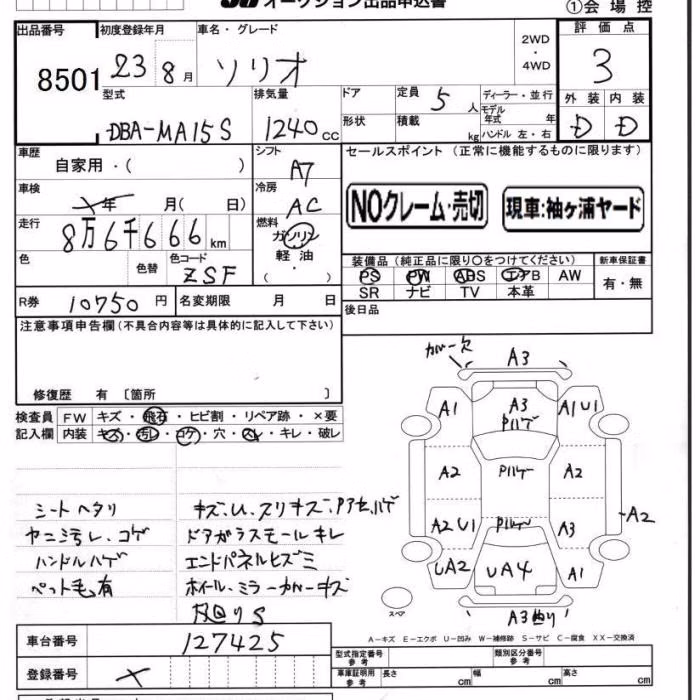 オークション出品申込書
①会場控
出品番号
8501
初度登録年月
23 8月
車名・グレード
ソリオ
2WD
・
4WD
評価点
3
型式
DBA-MA15S
排気量
1240cc
ドア
形状
定員
5人
積載
kg
ディーラー・並行
モデル年式 年
ハンドル 左・右
外装 内装
D D
車歴
自家用・( )
シフト
A7
セールスポイント (正常に機能するものに限ります)
車検
×年 月( 日)
冷房
AC
NOクレーム・売切
現車:袖ヶ浦ヤード
走行
8万6千666km
燃料
ガソリン
軽油
( )
色
色替
色コード
ZSF
装備品 (純正品に限り〇をつけてください)
新車保証書
PS PW ABS エアB AW
SR ナビ TV 本革
有・無
R券
10750円
名変期限 月 日
後日品
注意事項申告欄(不具合内容等は具体的に記入して下さい)
修復歴 有 〔箇所 〕
検査員記入欄
FW キズ・飛石・ヒビ割・リペア跡・×要
内装 キズ・汚レ・コゲ・穴・スレ・キレ・破レ
カバー欠
A3
A1
A3
Pハゲ
A1U1
A2
Pハゲ
A2
A2U1
Pハゲ
A3
A2
UA2
UA4
A1
A3
スペア
シートヘタリ
ヤニ汚レ、コゲ
ハンドルハゲ
ペット毛有
ドアガラスモールキレ
エンドパネルヒズミ
ホイール、ミラーカバーキズ
A-キズ E-エクボ U-凹み W-補修跡 S-サビ C-腐食 XX-交換済
車台番号
127425
登録番号
×
型式指定番号
参考
類別区分番号
参考
車庫証明用
参考
長さ cm
幅 cm
高さ cm